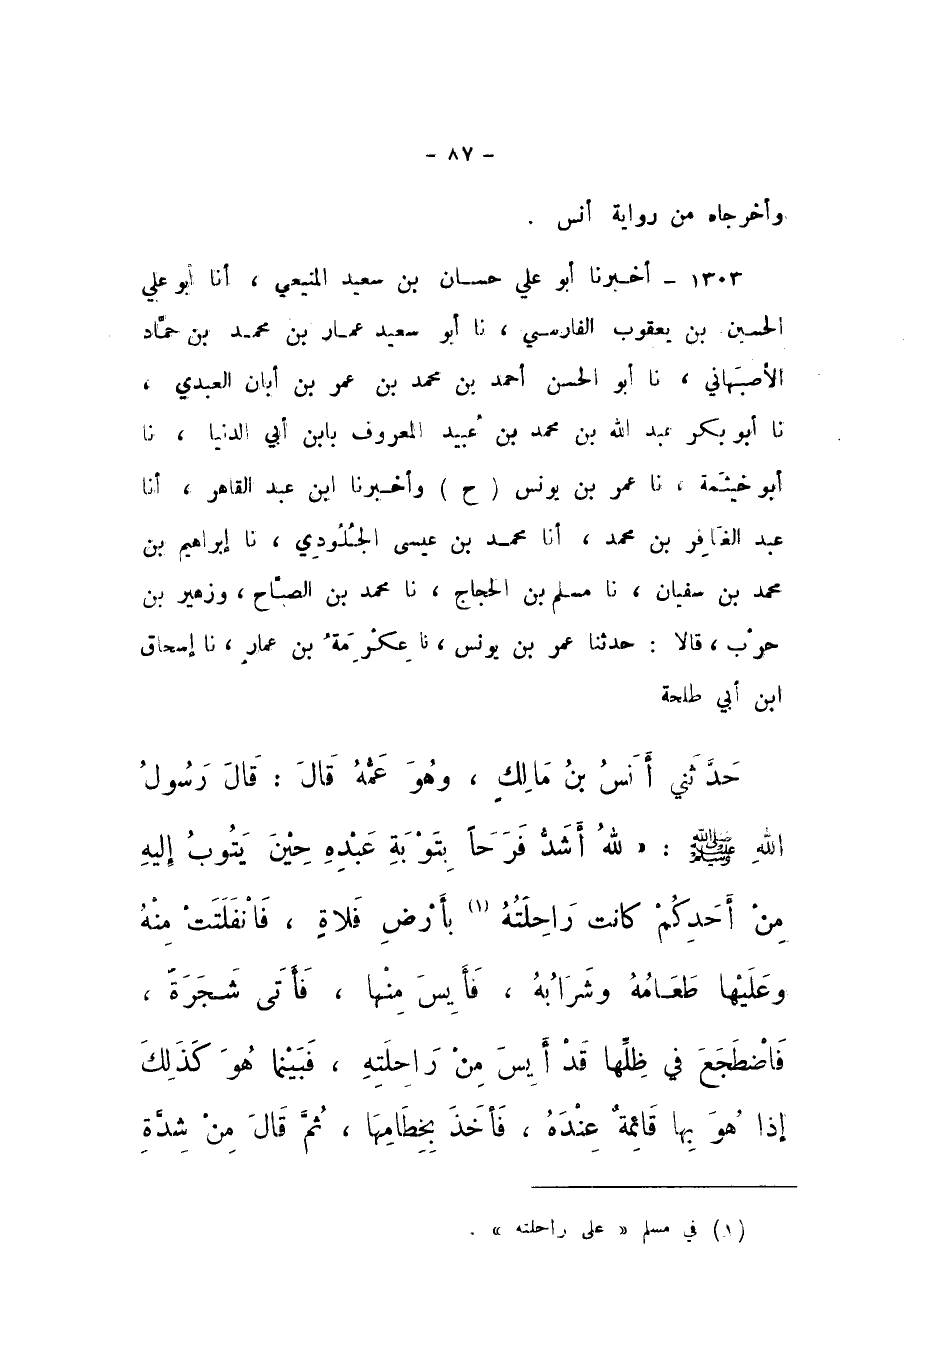 - ٨٧ -
وأخرجاه من رواية أنس .
١٣٠٣ - أخبرنا أبو علي حسان بن سعيد المنيعي ، أنا أبو علي
الحسين بن يعقوب الفارسي ، نا أبو سعيد عمار بن محمد بن حمَّاد
الأصبَهاني ، نا أبو الحسن أحمد بن محمد بن عمر بن أبان العبدي ،
نا أبو بكر عبد الله بن محمد بن عُبيد المعروف بابن أبي الدنيا ، نا
أبو خيثَمة ، نا عمر بن يونس ( ح ) وأخبرنا ابن عبد القاهر ، أنا
عبد الغَافِر بن محمد ، أنا محمد بن عيسى الجُلُودي ، نا إبراهيم بن
محمد بن سفيان ، نا مسلم بن الحجاج ، نا محمد بن الصبَّاح ، وزهير بن
حرْب ، قالا : حدثنا عمر بن يونس ، نا عِكْرِمَةُ بن عمارٍ ، نا إسحاق
ابن أبي طلحة
حَدَّثَني أَنَسُ بنُ مَالِكٍ ، وهُوَ عَمُّهُ قَالَ : قَالَ رَسُولُ
اللهِ ﷺ : « للهُ أَشَدُّ فَرَحَاً بِتَوْبَةِ عَبْدِهِ حِيْنَ يَتُوبُ إليهِ
مِنْ أَحَدِكُمْ كانت رَاحِلَتُهُ (١) بأَرْضِ فَلاةٍ ، فَانْفَلَتَتْ مِنْهُ
وعَلَيْها طَعَامُهُ وشَرَابُهُ ، فَأَيِسَ مِنْها ، فَأَتى شَجَرَةً ،
فَاضْطَجَعَ في ظِلِّها قَدْ أَيِسَ مِنْ رَاحِلَتِهِ ، فَبَيْنَا هُوَ كَذَلِكَ
إذا هُوَ بِها قَائِمَةٌ عِنْدَهُ ، فَأَخَذَ بِخِطَامِهَا ، ثُمَّ قَالَ مِنْ شِدَّةِ
(١) في مسلم « على راحلته » .